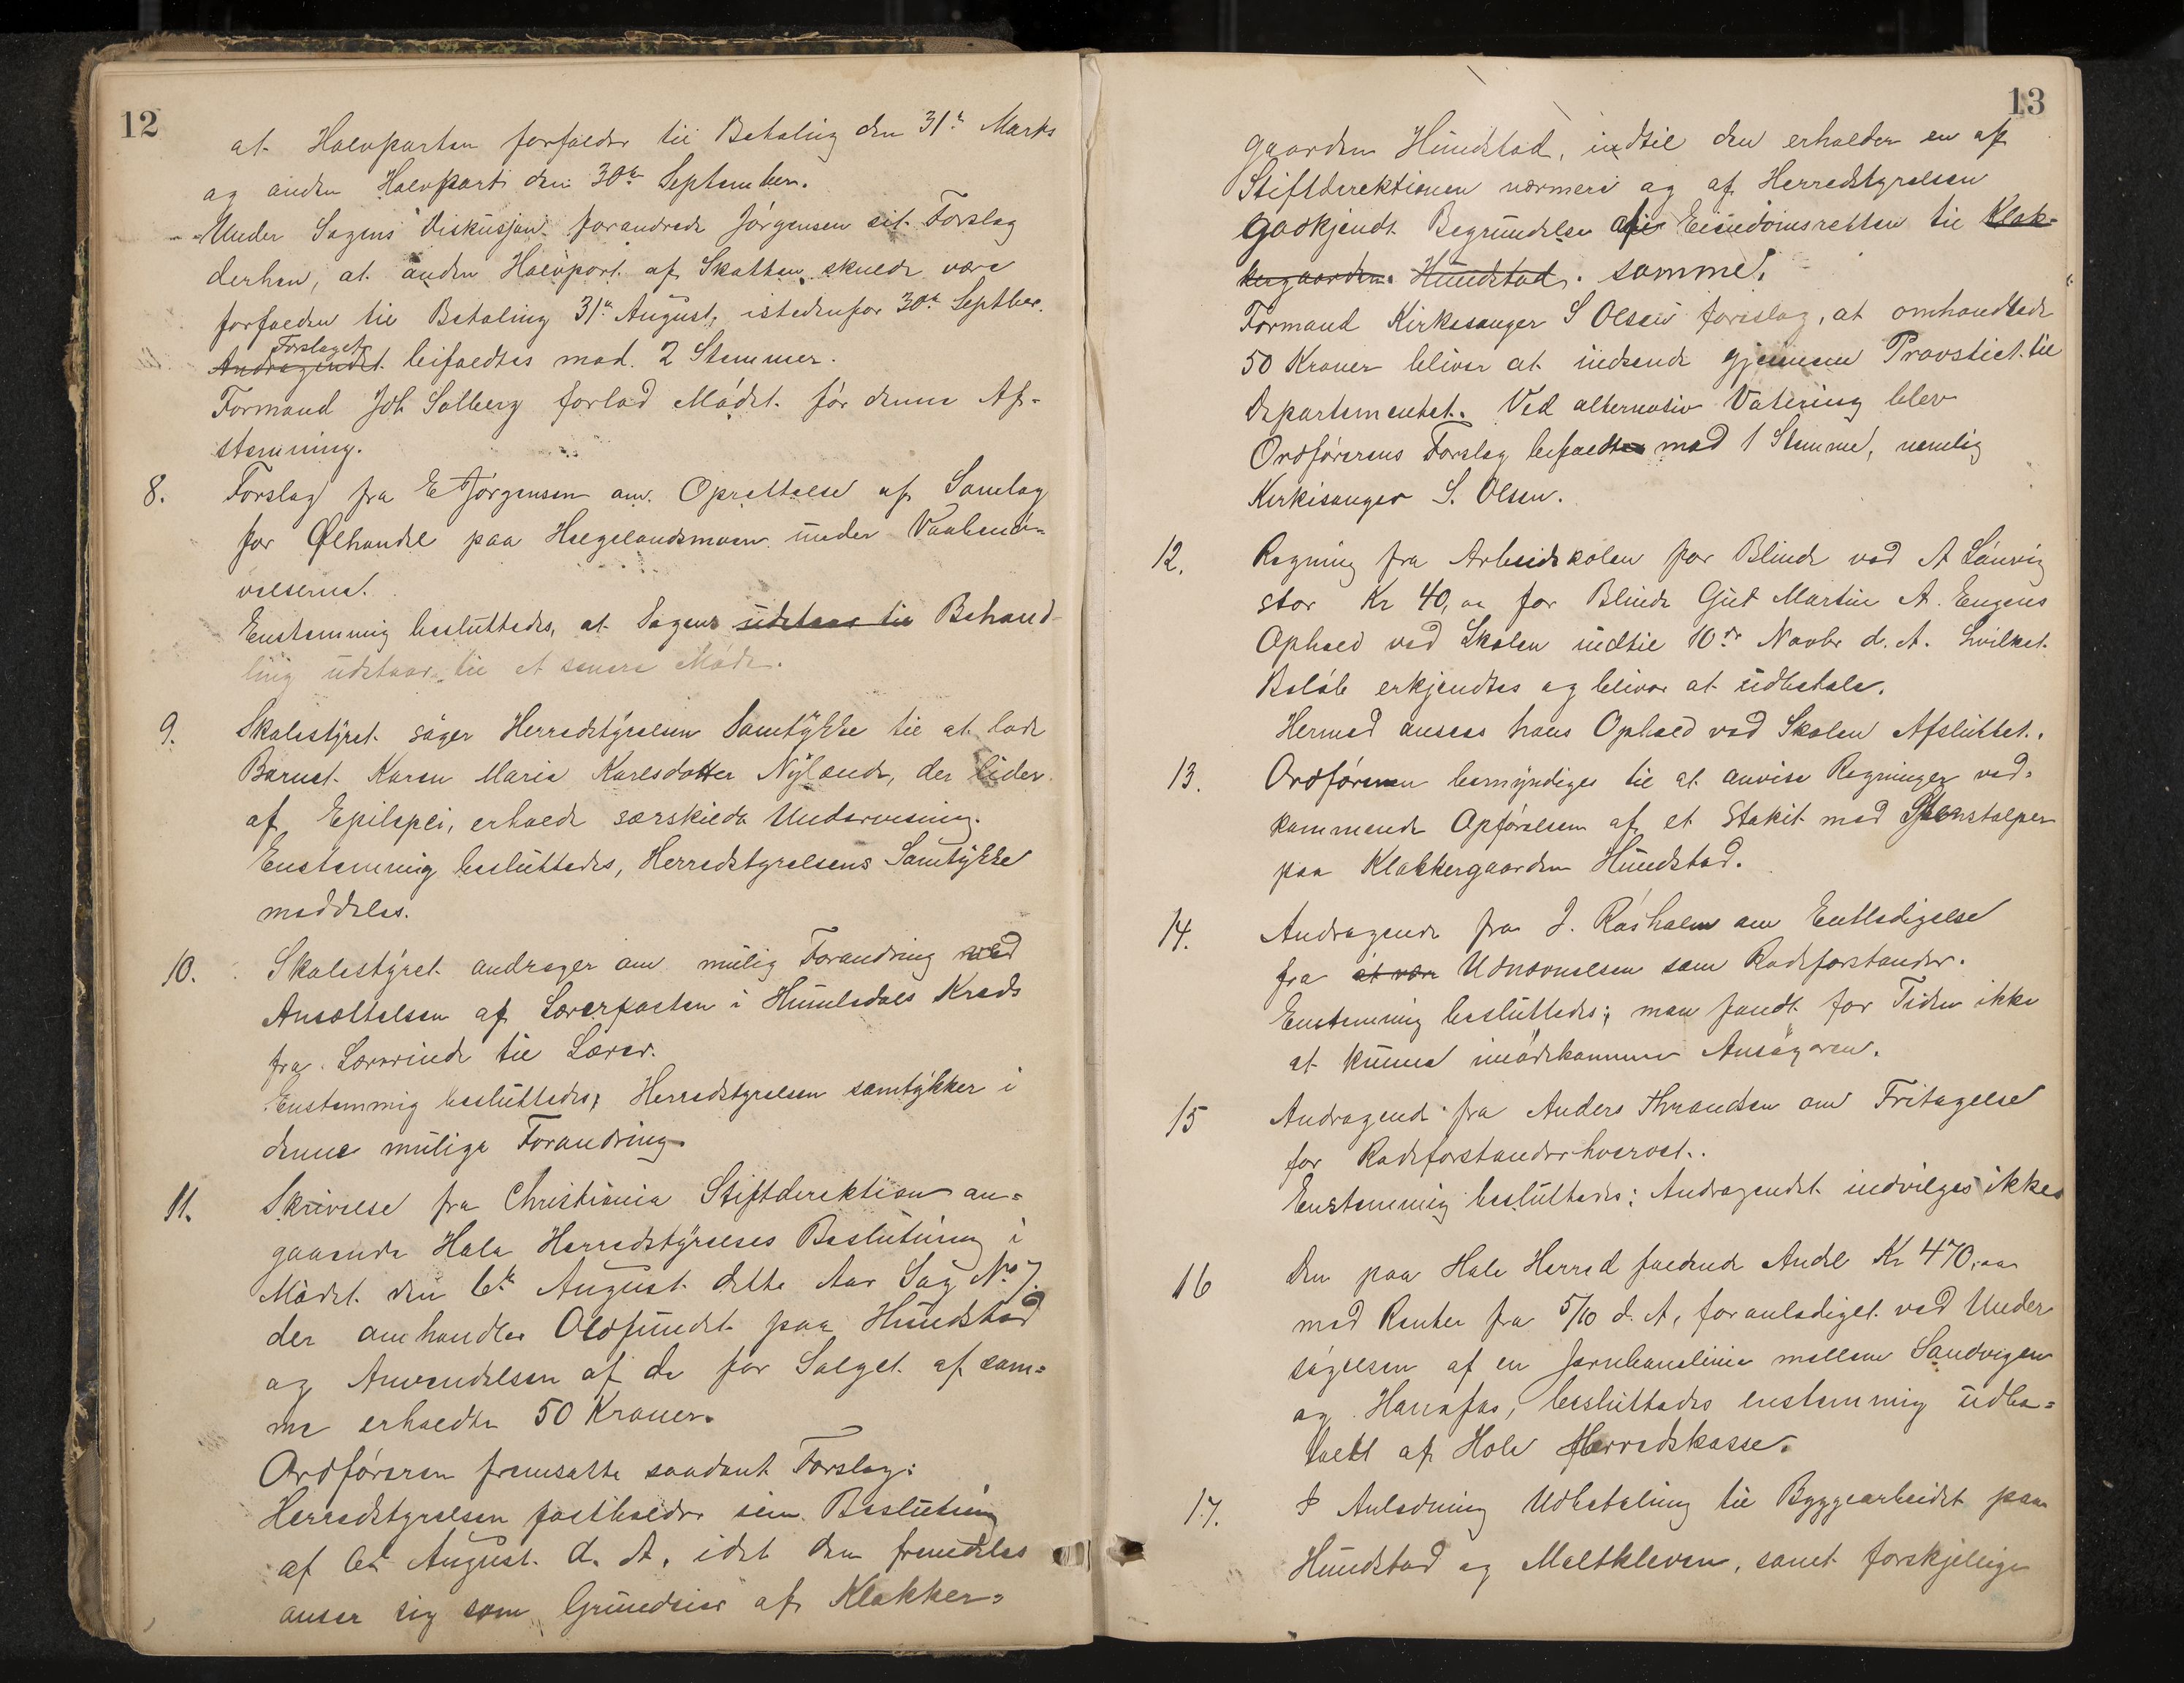 12
at Halvparten forfalder til Betaling den 31te Marts
og anden Halvpart den 30te September.
Under Sagens Diskusjon forandrede Jørgensen sit Forslag
derhen, at anden Halvport af Skatten skulde være
forfalden til Betaling 31te August, istedenfor 30te Septber.
Forslaget
Andragendet bifaldtes mod 2 Stemmer.
Formand Joh Solberg forlod Mødet før denne Af-
stemning.
8. Forslag fra E Jørgensen om Oprettelse af Samlag
for Ølhandel paa Helgelandsmoen under Vaabenø-
velserne.
Enstemmig besluttedes, at Sagens udstaar til Behand-
ling udstaar til et senere Møde.
9. Skolestyret søger Herredstyrelsen Samtykke til at lade
Barnet Karen Marie Karlsdatter Nylænde, der lider
af Epilepsi, erholde særskildt Undervisning.
Enstemmig besluttedes, Herredstyrelsens Samtykke
meddeles.
10. Skolestyret andrager om mulig Forandring med
Ansættelsen af Lærerposten i Humledals Kreds
fra Lærerinde til Lærer.
Enstemmig besluttedes, Herredstyrelsen samtykker i
denne mulige Forandring.
11. Skrivelse fra Christiania Stiftdirektion an-
gaaende Hole Herredstyrelses Beslutning i
Mødet den 6te August dette Aar Sag No 7.
der omhandler Oldfundet paa Hundstad
og Anvendelsen af de for Salget af sam-
me erholdte 50 Kroner.
Ordføreren fremsatte saadant Forslag:
Herredstyrelsen fastholder sin Beslutning
af 6te August d. A. idet den fremdeles
anser sig som Grundeier af Klokker-
13
gaarden Hundstad, indtil den erholder en af
Stiftdirektionen nærmere og af Herredstyrelsen
godkjendt Begrundelse af Eiendomsretten til Klok-
kergaarden Hundstad. samme.
Formand Kirkesanger S Olsen foreslog, at omhandlede
50 Kroner bliver at indsende gjennem Provstiet til
Departementet. Ved alternativ Votering blev
Ordførerens Forslag bifaldt mod 1 Stemme, nemlig
Kirkesanger S. Olsen.
12. Regning fra Arbeidskolen for Blinde ved A
stor Kr 40,00 for Blinde Gut Martin A. Engens
Ophold ved Skolen indtil 10de Novbr d. A. hvilket
Beløb erkjendtes og bliver at udbetale.
Hermed ansees hans Ophold ved Skolen Afsluttet.
13. Ordføreren bemyndiges til at anvise Regninger ved-
kommende Opførelsen af et Stakit med Stenstolper
paa Klokkergaarden Hundstad.
14. Andragende fra J. Røsholm om Entledigelse
fra at være Udnævnelsen som Rodeforstander.
Enstemmig besluttedes; man fandt for Tiden ikke
at kunne imødekomme Ansøgeren.
15 Andragende fra Anders Thrandsen om Fritagelse
for Rodeforstanderhvervet.
Enstemmig besluttedes: Andragendet indvilges ikke
16 Den paa Hole Herred faldende Andel Kr 470,00
med Renter fra 5/10 d. A, foranlediget ved Under
søgelsen af en Jernbanelinie mellem Sandvigen
og Hønefos, besluttedes enstemmig udbe-
talt af Hole Herredskasse.
17. I Anledning Udbetaling til Byggearbeidet paa
Hundstad og Meltkleven, samt forskjellige